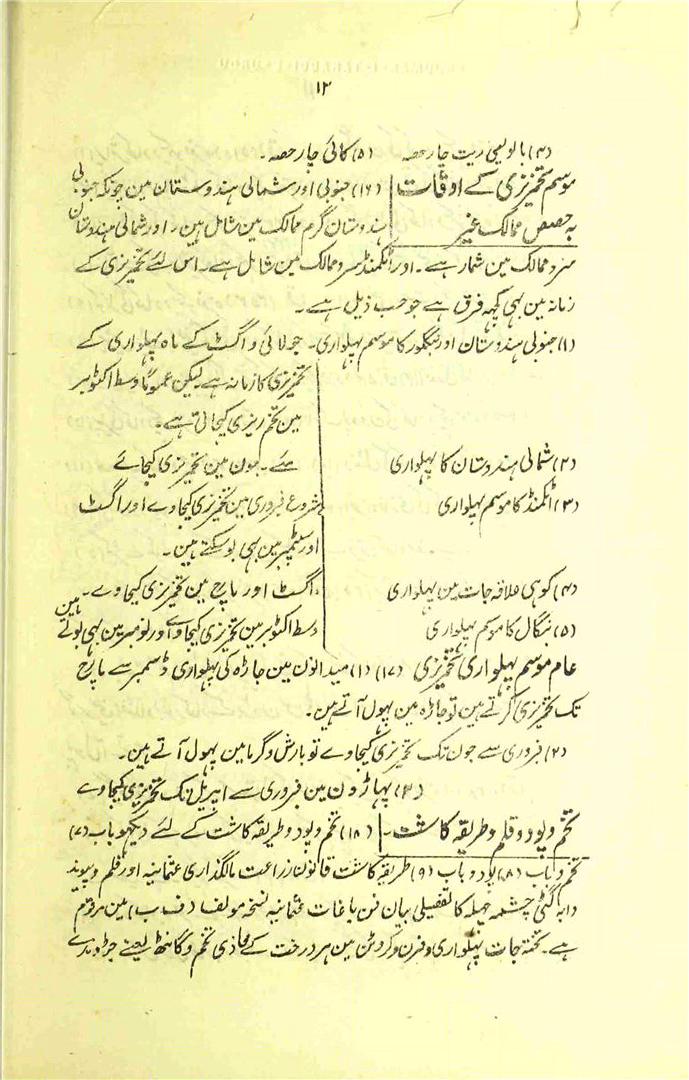 ۱۲
(۴) بالو یعنی ریت چار حصہ (۵) کائی چار حصہ۔
موسم تخمریزی کے اوقات (۱۶) جنوبی اور شمالی ہندوستان مین چونکہ جنوبی
بہ حصص ممالک غیر ہندوستان گرم ممالک مین شامل ہین۔ اور شمالی ہندوستان
سرد ممالک مین شمار ہے۔ اور انگلنڈ سرد ممالک مین شامل ہے۔ اس لئے تخمریزی کے
زمانہ مین بہی کچہہ فرق ہے جو حسب ذیل ہے۔
(۱) جنوبی ہندوستان اور بنگلور کا موسم پہلواری۔ جولائی و اگسٹ کے ماہ پہلواری کے
تخمریزی کا زمانہ ہے لیکن عموماً وسط اکٹوبر
مین تخم ریزی کیجاتی ہے۔
(۲) شمالی ہندوستان کا پہلواری مئے۔ جون مین تخمریزی کیجائے
(۳) انگلنڈ کا موسم پہلواری شروع فروری مین تخمریزی کیجاوے اور اگسٹ
اور سپٹمبر مین بہی بو سکتے ہین۔
(۴) کوہی علاقہ جات مین پہلواری اگسٹ اور مارچ مین تخمریزی کیجاوے۔
(۵) بنگال کا موسم پہلواری وسط اکٹوبر مین تخمریزی کیجاوے اور نومبر مین بہی بوتے ہین
عام موسم پہلواری تخمریزی (۱۷) (۱) میدانون مین جاڑہ کی پہلواری ڈسمبر سے مارچ
تک تخمریزی کرتے ہین تو جاڑہ مین پہول آتے ہین۔
(۲) فروری سے جون تک تخمریزی کیجاوے تو بارش و گرما مین پہول آتے ہین۔
(۳) پہاڑون مین فروری سے اپریل تک تخمریزی کیجاوے
تخم و پود و قلم و طریقہ کاشت۔ (۱۸) تخم و پود و طریقہ کاشت کے لئے دیکہو باب (۷)
تخم و باب (۸) پود و باب (۹) طریقہ کاشت قانون زراعت مالگذاری عثمانیہ اور قلم و پیوند
دابہ گٹی چشمہ چہلہ کا تفصیلی بیان فن باغات عثمانیہ نسخہ مولف (ف ب) مین مرقوم
ہے۔ تختہ جات پہلواری و فرن و کروٹن مین ہر درخت کے محاذی تخم و گانٹھ یعنے جڑ وندے